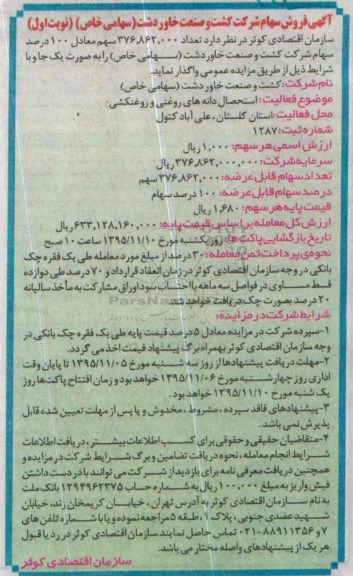 آگهی فروش سهام شرکت کشت و صنعت خاور دشت (سهامی خاص) (نوبت اول)
سازمان اقتصادی کوثر در نظر دارد تعداد ۳۷۶,۸۶۲,۰۰۰ سهم معادل ۱۰۰ درصد
سهام شرکت کشت و صنعت خاور دشت (سهامی خاص) را به صورت یک جا و با
شرایط ذیل از طریق مزایده عمومی واگذار نماید.
نام شرکت: کشت و صنعت خاور دشت (سهامی خاص)
موضوع فعالیت: استحصال دانه های روغنی و روغنکشی.
محل فعالیت: استان گلستان ، علی آباد کتول
شماره ثبت: ۱۲۸۷
ارزش اسمی هر سهم: ۱,۰۰۰ ریال
سرمایه شرکت: ۳۷۶,۸۶۲,۰۰۰,۰۰۰ ریال
تعداد سهام قابل عرضه: ۳۷۶,۸۶۲,۰۰۰ سهم
درصد سهام قابل عرضه: ۱۰۰ درصد سهام
قیمت پایه هر سهم: ۱,۶۸۰ ریال
ارزش کل معامله بر اساس قیمت پایه: ۶۳۳,۱۲۸,۱۶۰,۰۰۰ ریال
تاریخ بازگشایی پاکت ها: روز یکشنبه مورخ ۱۳۹۵/۱۱/۱۰ ساعت ۱۰ صبح
نحوه ی پرداخت ثمن معامله: ۳۰ درصد از مبلغ مورد معامله طی یک فقره چک
بانکی در وجه سازمان اقتصادی کوثر در زمان انعقاد قرارداد و ۷۰ درصد طی دوازده
قسط مساوی در فواصل سه ماهه با احتساب سود اوراق مشارکت به مأخذ سالیانه
۲۰ درصد بصورت چک دریافت خواهد شد.
شرایط شرکت در مزایده:
۱-سپرده شرکت در مزایده معادل ۵ درصد قیمت پایه طی یک فقره چک بانکی در
وجه سازمان اقتصادی کوثر بهمراه برگ پیشنهاد قیمت اخذ می گردد.
۲-مهلت دریافت پیشنهادها از روز سه شنبه مورخ ۱۳۹۵/۱۱/۰۵ تا پایان وقت
اداری روز چهارشنبه مورخ ۱۳۹۵/۱۱/۰۶ خواهد بود و زمان افتتاح پاکت ها روز
یک شنبه مورخ ۱۳۹۵/۱۱/۱۰ خواهد بود.
۳-پیشنهادهای فاقد سپرده ، مشروط ، مخدوش و یا پس از مهلت تعیین شده قابل
پذیرش نمی باشد.
۴-متقاضیان حقیقی و حقوقی برای کسب اطلاعات بیشتر ، دریافت اطلاعات
شرایط انجام معامله ، نحوه دریافت تضامین و برگ شرایط شرکت در مزایده و
همچنین دریافت معرفی نامه برای بازدید از شرکت می توانند با در دست داشتن
فیش واریز به مبلغ ۱۰۰,۰۰۰ ریال به شماره حساب ۱۲۹۴۹۶۲۳۷۵ بانک ملت
به نام سازمان اقتصادی کوثر به آدرس تهران ، خیابان کریمخان زند، خیابان
شهید عضدی جنوبی ، پلاک ۱ ، طبقه ۵ مراجعه نموده و یا با شماره تلفن های
۷ و ۸۸۹۱۱۳۵۶-۰۲۱ تماس حاصل نمایند. سازمان اقتصادی کوثر در رد یا قبول
هر یک از پیشنهادهای واصله مختار می باشد.
سازمان اقتصادی کوثر